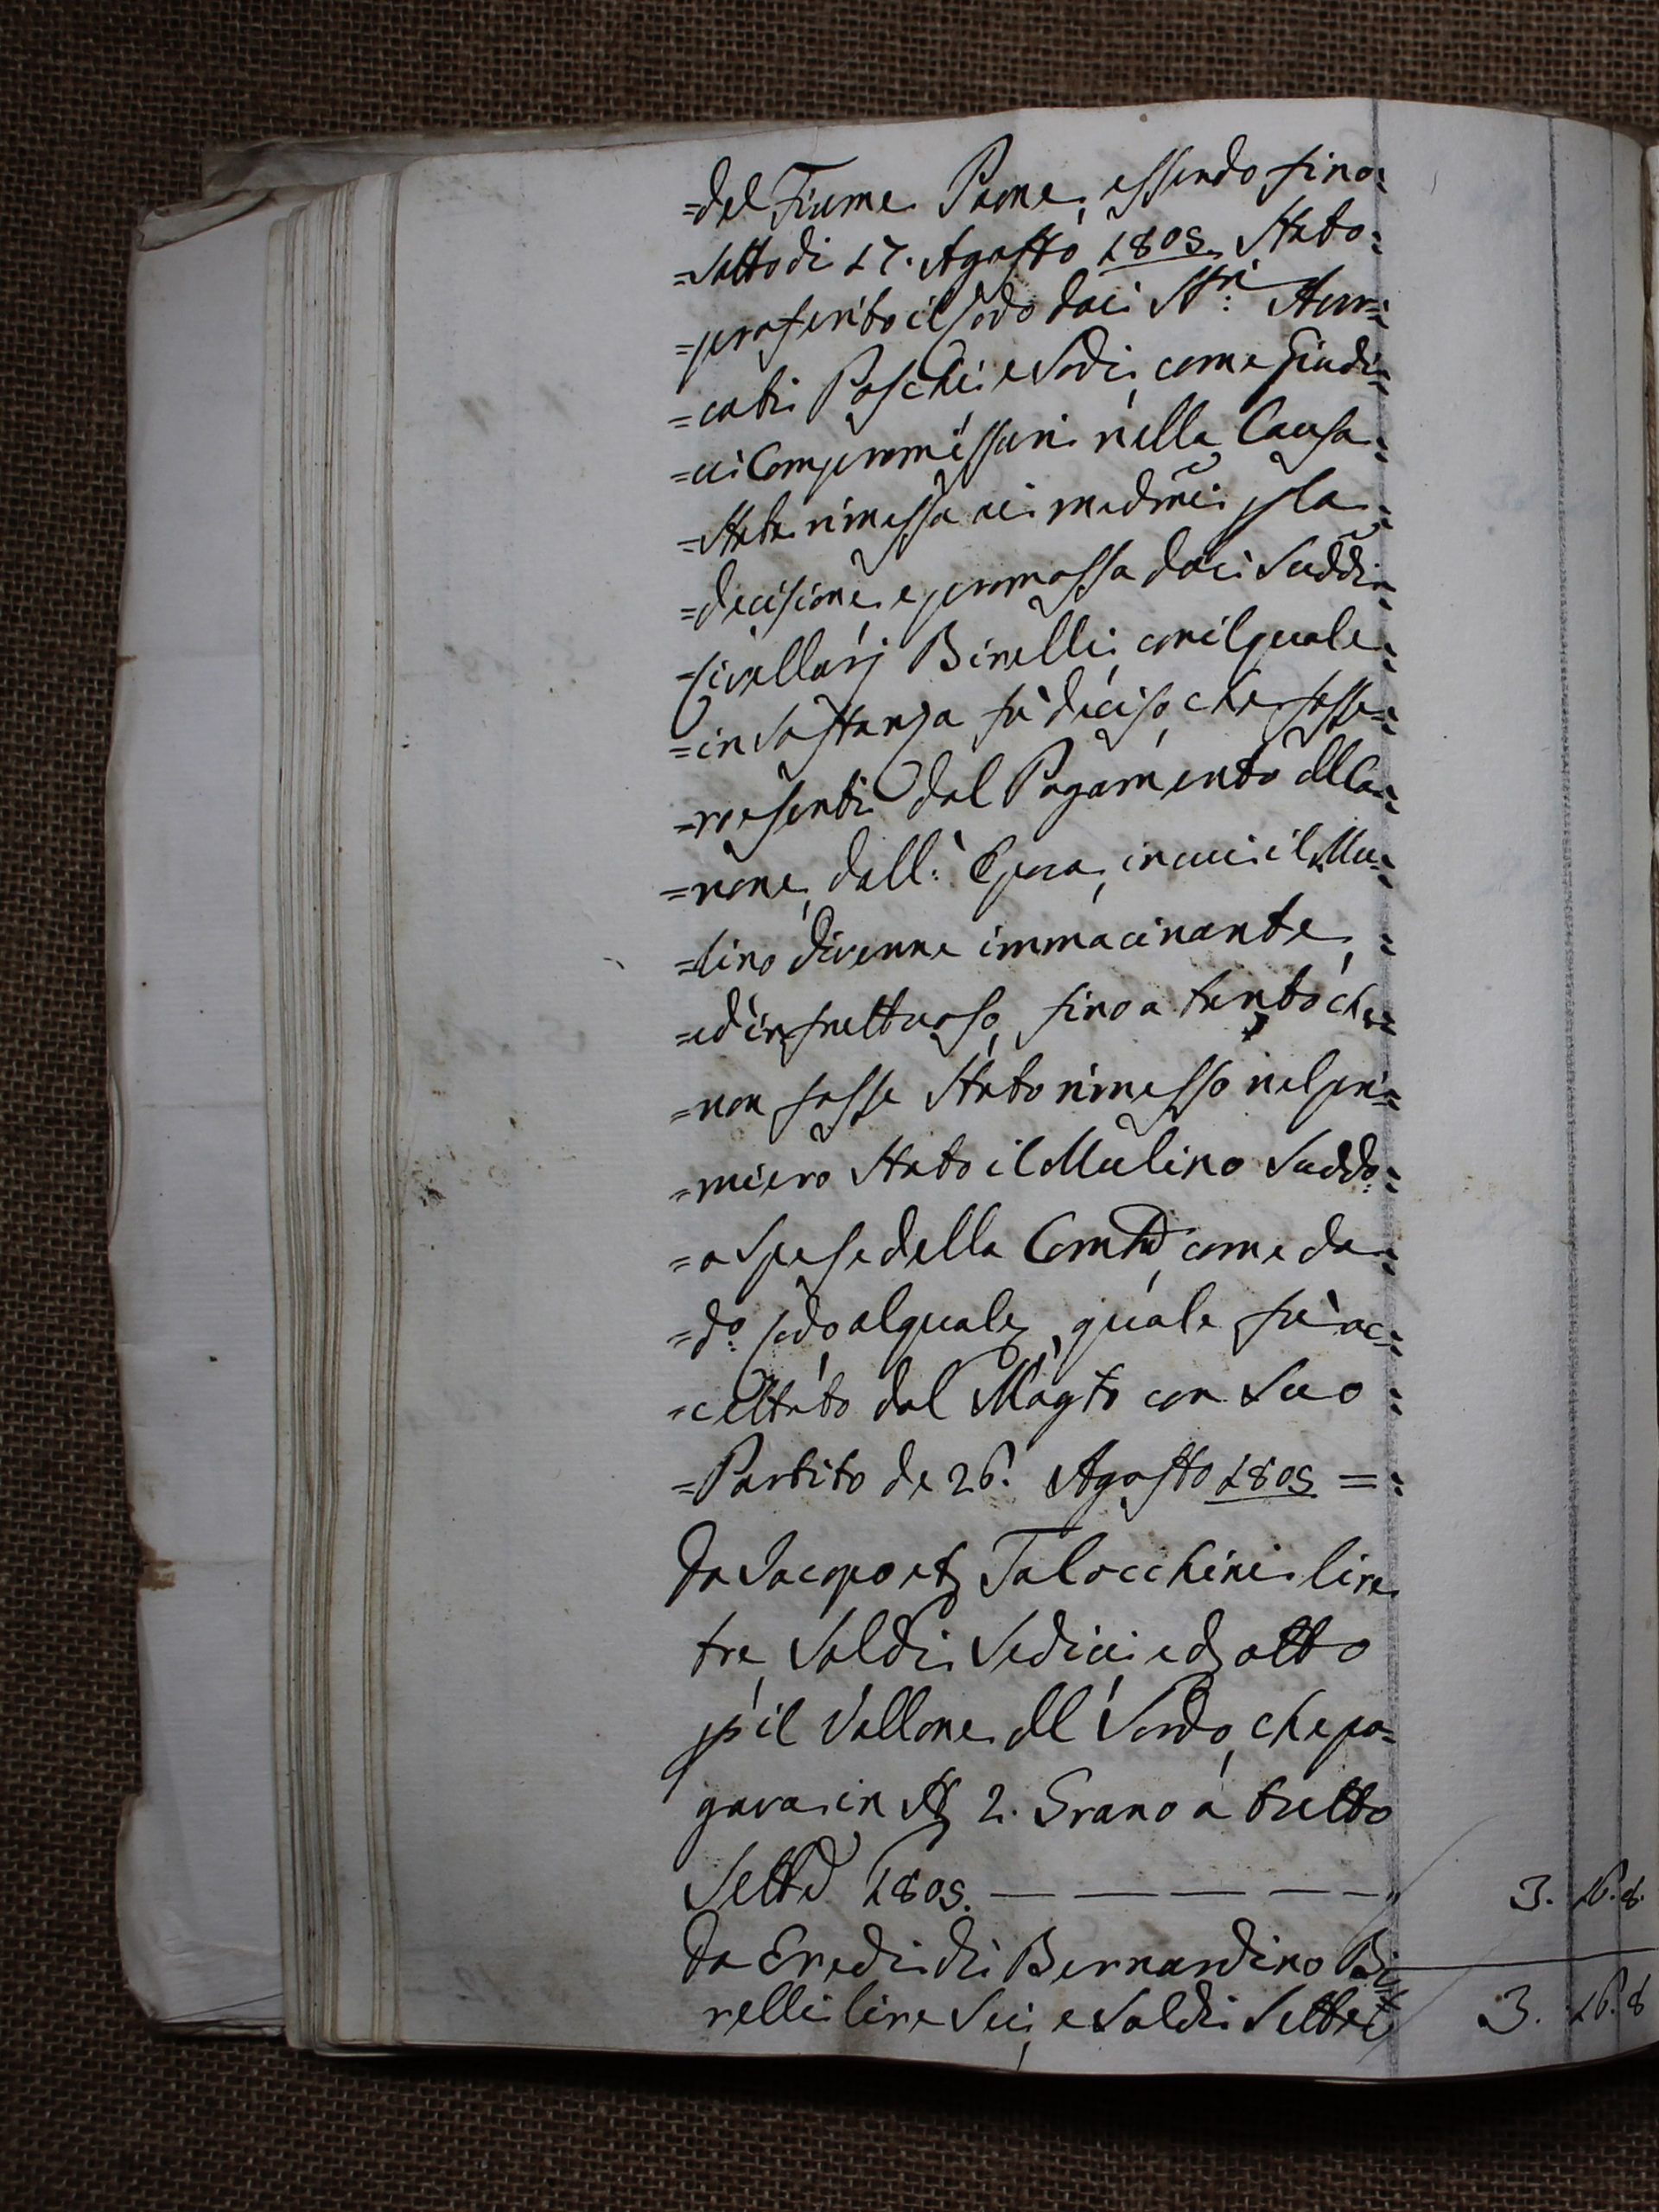 =del Fiume Paone, essendo fino=
=sotto di 17. Agosto 1805. Stato=
=proferito il Lodo dai SSri: Avvo=
=cati Paschi e Sodi, come Giudi=
=ci Compromissari nella Causa=
=stata rimessa ai medmi p la=
=decisione, e promossa dai Suddi=
=Livellarj Binelli, con il quale=
=in Sostanza fù deciso, che fosse=
=ro esenti dal Pagamento del Ca=
=none, dall': Epoca, in cui il Mu=
=lino divenne immacinante,=
=ed infruttuoso, fino a tanto che=
=non fosse Stato rimesso nel pri=
=miero Stato il Mulino Suddo:=
=a Spese della Comtà, come da=
=do: Lodo, al quale, quale fù ac=
=cettato dal Magto con Suo=
=Partito de 26: Agosto 1805 = =
Da Jacopo Talocchini lire
tre, Soldi Sedici, e d otto
p il Vallone del Sordo, che pa=
gava in 2. Grano a tutto
Sett 1805. — — — — — " 3. 16. 8.
Da Eredi di Bernardino Bi
nelli lire Sei, e Soldi Sette
3. 16. 8